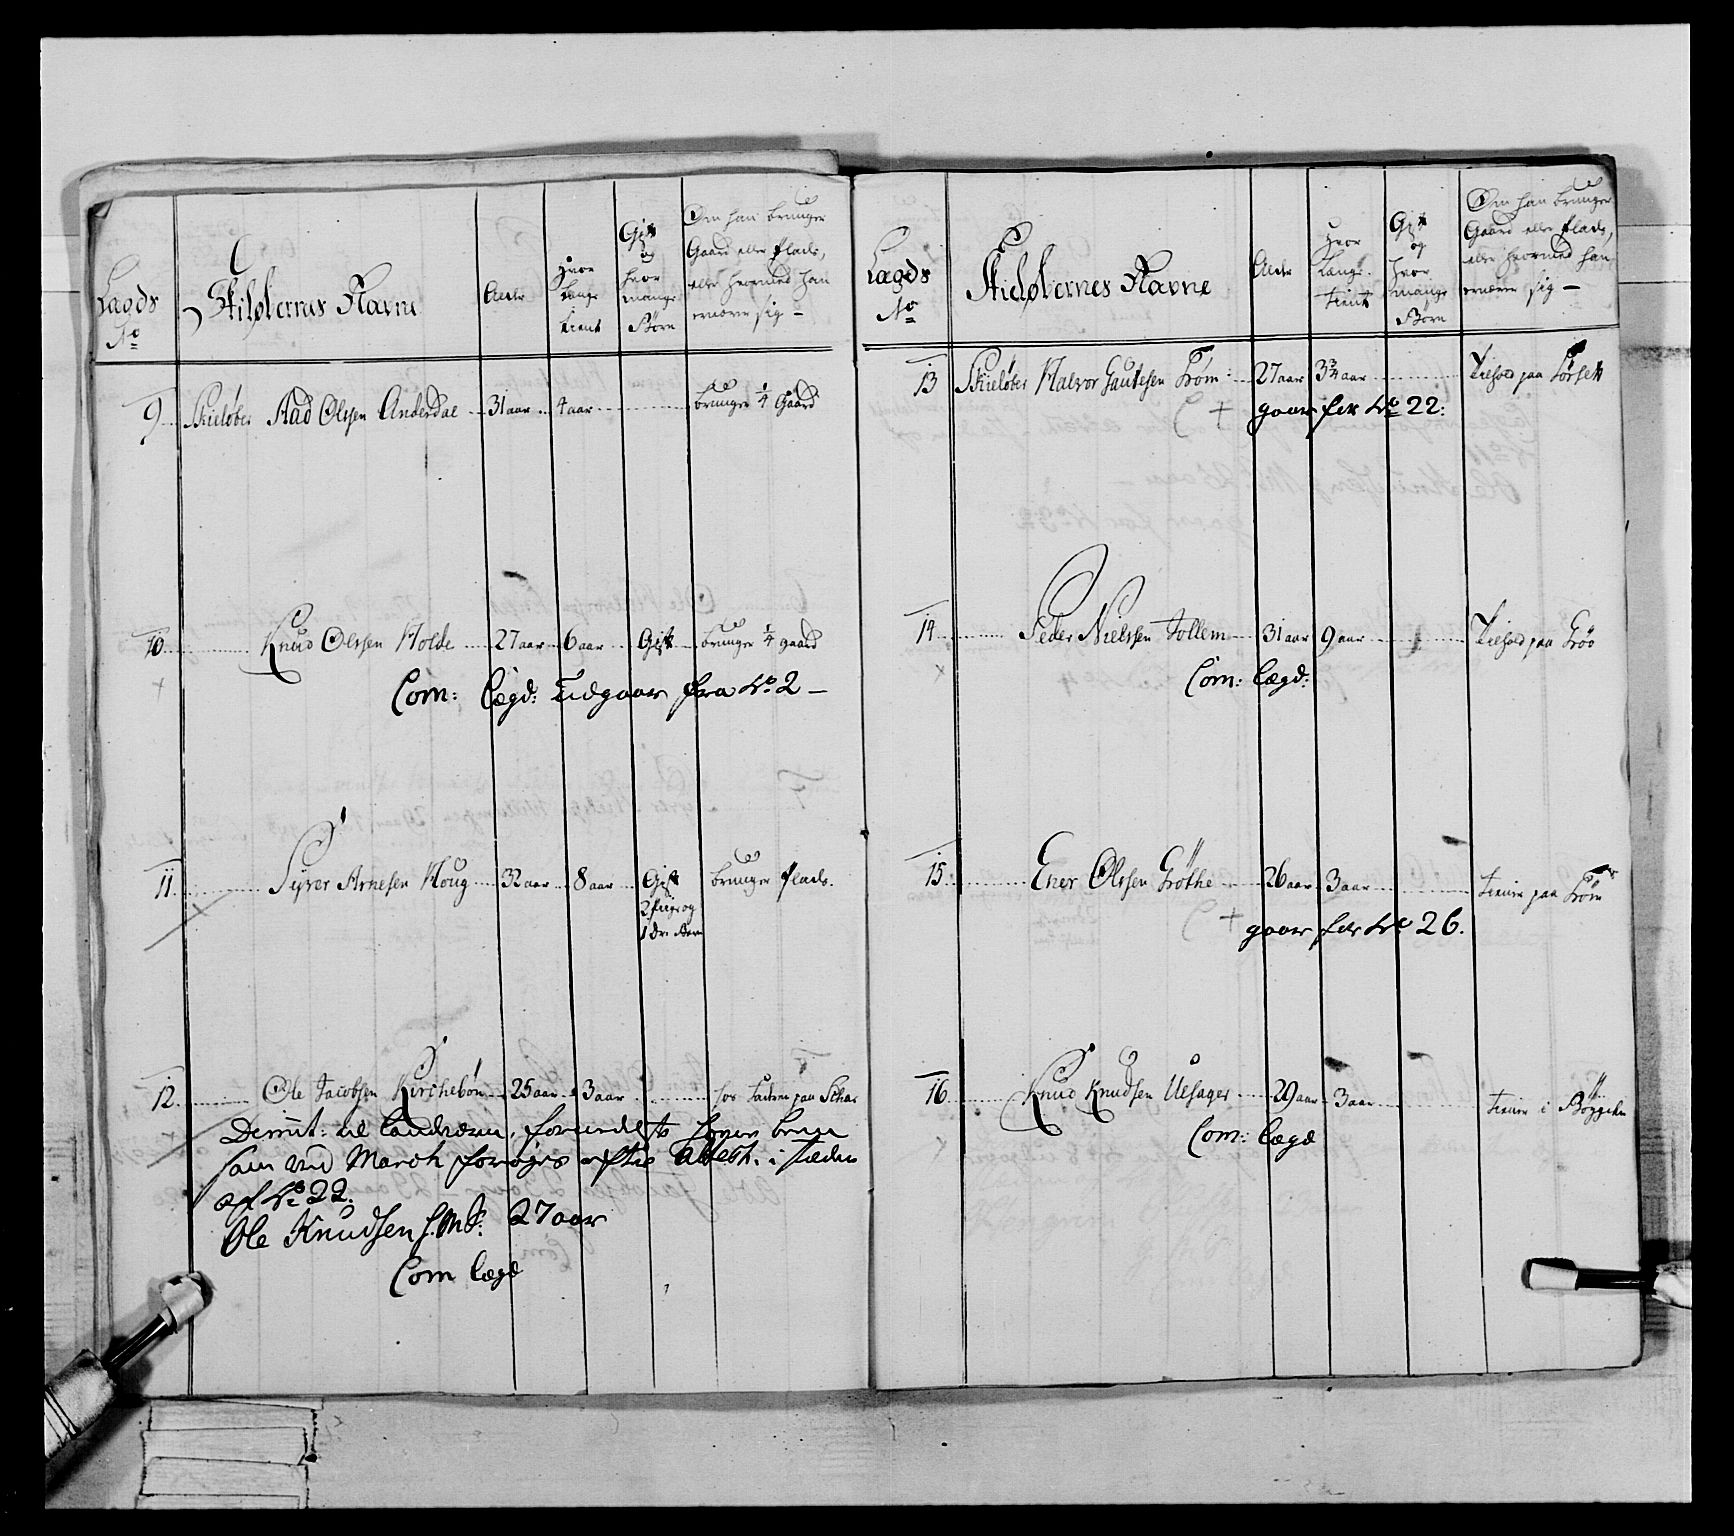 Lægds
No
Skiløbernes Navne
Alder
Hvor
Længe
tient
Gift
og
hvor
mange
Børn
Om han bruuger
Gaard eller Plads,
eller hvormed han
ernærer sig –
9 Skieløber Aad Olssen Anderdal 31 aar 4 aar bruuger 1/4 Gaard
10 Knud Olssen Holde 27 aar 6 aar Gift bruuger 1/4 gaard
Com: Lægd: udgaar fra No 2 –
11 Syver Arnesen Houg 32 aar 8 aar Gift bruuger Plads.
2 Piige og
1 dr: Børn
12 Ole Jacobsen Kirchebøn 25 aar 3 aar hos Faderen paa
Dimit: til Landværn, formedelst
som ved March forøges efter Attest. i stæden
af No 22.
Ole Knudsen 27 aar
Com Lægd
Lægds
No
Skieløbernes Navne
Alder
Hvor
Længe
tient
Gift
og
hvor
mange
Børn
Om han bruuger
Gaard eller Plads,
eller hvormed han
ernærer sig –
13 Skieløber Halvor Gautesen Trøm 27 aar 3 3/4 aar Tilhold paa
gaar for No 22:
14 Peder Nielssen Tollem 31 aar 9 aar Tilhold paa Grøo
Com: Lægd:
15 Ener Olssen Grøthe 26 aar 3 aar tiener paa Trøm
gaar for No 26.
16 Knud Knudsen Ulsager 29 aar 3 aar tiener i Bøygden
Com: Lægd